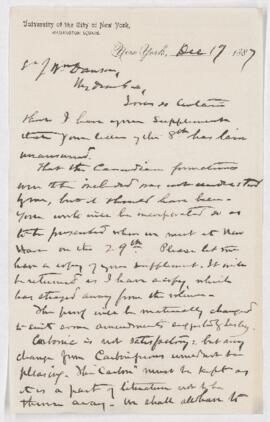 University of the City of New York,
WASHINGTON SQUARE.
New York, Dec 17 1887
Sir J Wm Dawson,
My dear Sir,
I was so certain
that I have your Supplement
that your letter of the 8th has lain
unanswered.
That the Canadian formations
were to be included was not understood
by us, but it should have been.
Your work will be incorporated so as
to be presented when we meet at New
Haven on the 29th. Please let me
have a copy of your supplement. It will
be returned as I have a copy, which
has strayed away from the volume.
The proof will be materially changed
to suit some amendments suggested by
Carbonic is not satisfactory; but any
change from Carboniferous would not be
pleasing. The "Carbon" must be kept as
it is a part of literature not to be
thrown away. We shall all have to